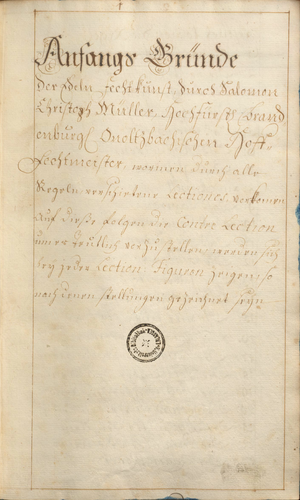 Anfangs Gründe
Der Edeln Fechtkunst, durch Salomon
Christoph Müller, Hochfürstl. Brand
enburgl. Onoltzbachischen Hoff-
Fechtmeister, worinnen durch alle
Regeln verschietene Lectiones vorkomen
Auf diese folgen die Contre Lection
umer deutlich vorzustellen, werden sich
bey jeder Lection Figuren zeigen, so
nach denen stellungen gezeichnet seyn